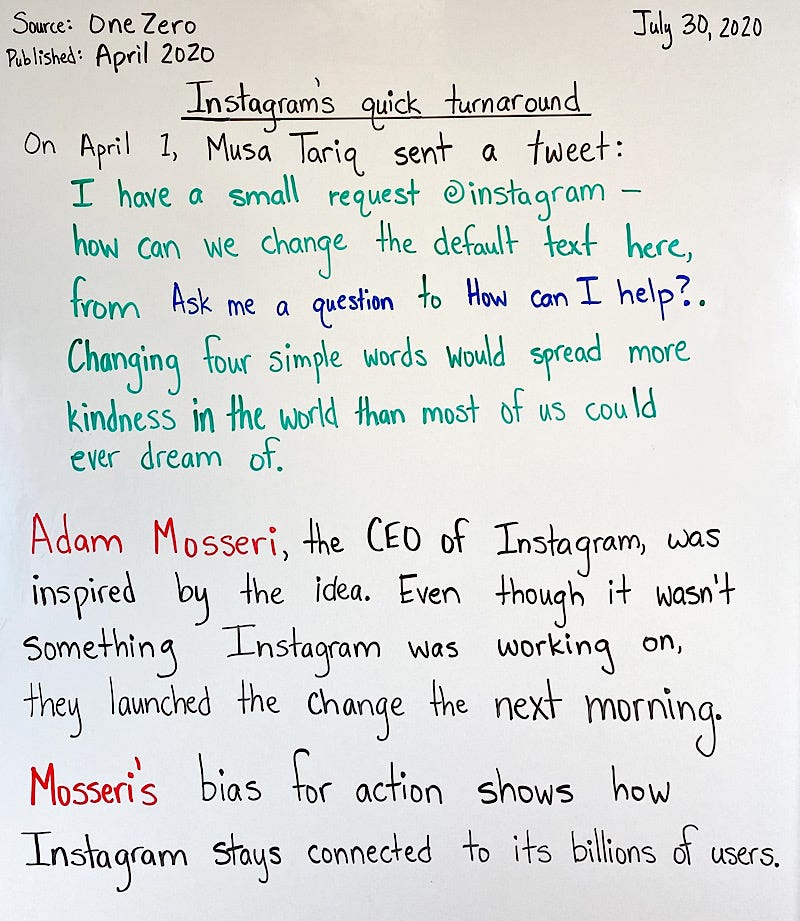 Source: One Zero
July 30, 2020
Published: April 2020
Instagram's quick turnaround
On April 1, Musa Tariq sent a tweet:
I have a small request @instagram –
how can we change the default text here,
from Ask me a question to How can I help?.
Changing four simple words would spread more
kindness in the world than most of us could
ever dream of.
Adam Mosseri, the CEO of Instagram, was
inspired by the idea. Even though it wasn't
something Instagram was working on,
they launched the change the next morning.
Mosseri's bias for action shows how
Instagram stays connected to its billions of users.